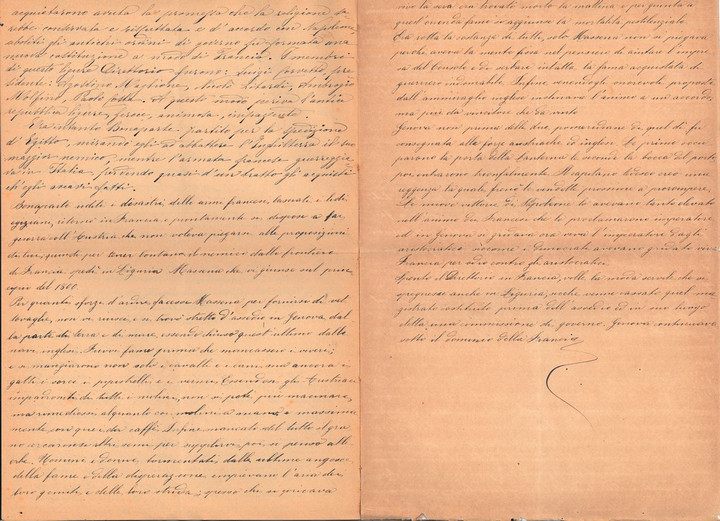 acquietarono avuta la promessa che la religione sa
rebbe conservata e rispettata e d'accordo con Napoleone
aboliti gli antichi ordini di governo fu formata una
nuova costituzione a modo di Francia. I membri
di questo Direttorio furono: Luigi Corvetto, pre
sidente; Agostino Maglione, Litardi, Ambrogio
Molfino, Paolo Costa. A questo modo periva l'antica
repubblica ligure, forse, animosa,
Era intanto Bonaparte partito per la spedizione
d'Egitto, mirando egli ad abbattere l'Inghilterra il suo
maggior nemico, mentre l'armata francese guerreggia
va in Italia perdendo quasi d'un tratto gli acquisti
ch'egli aveva fatti.
Bonaparte udito i disastri delle armi francesi, lasciati i lidi
egiziani, ritornò in Francia e puntamente si dispose a far
guerra coll'Austria che non voleva piegarsi alle proposizioni
da lui, quando per tener lontano il nemico dalle frontiere
di Francia, spedì in Liguria Massena che vi giunse nel prin
cipio del 1800.
Per quanto sforzo d'ardire facesse Massena per fornirsi di vet
tovaglie, non vi riuscì e si trovò stretto d'assedio in Genova dal
la parte di terra e di mare, essendo chiuso quest'ultimo dalle
navi inglesi. Fu vera fame prima che mancassero i viveri;
e si mangiarono non solo i cavalli e i cani, ma ancora i
gatti i sorci i pipistrelli e i vermi. Essendosi gli Austriaci
impadroniti di tutti i molini, non si potè più macinare,
ma rimediossi alquanto coi molini a mano e massima
mente con quei da caffè. Infine mancato del tutto il gra
no cercaronsi altri semi per supplirvi, poi si pensò all'
erbe. Uomini e donne tormentati dalle ultime angosce
della fame e della disperazione empivano l'aria dei
loro gemiti e delle loro strida; spesso chi si giaceva
vivo la sera era trovato morto la mattina e per giunta a
quest'orrenda fame s'aggiunse la mortalità pestilenziale.
Era rotta la costanza di tutti, solo Massena non si piegava
perchè aveva la mente fissa nel pensiero di aiutare l'impre
sa del Console e di serbare intatta la fama acquistata di
guerriero indomabile. Infine essendogli onorevoli proposte
dall'ammiraglio inglese inclinava l'animo a un accordo,
ma più da vincitore che da vinto.
Genova non prima delle due pomeridiane di quel dì fu
consegnata alle forze austriache ed inglesi. Le prime occu
parono la porta della Lanterna le seconde la bocca del porto
poi entrarono trionfalmente. Il capitano tedesco creò una
reggenza la quale frenò le vendette prossime a prorompere.
Le nuove vittorie di Napoleone lo avevano tanto elevato
nell'animo dei Francesi che lo proclamarono imperatore
ed in Genova si gridava ora viva l'imperatore dagli
aristocratici siccome i democratici avevano gridato viva
Francia per odio contro gli aristocratici.
Spento il Direttorio in Francia, volle la moda servile che si
spegnesse anche in Liguria; anche venne cassato quel ma
gistrato costituito prima dell'assedio ed in suo luogo
eletta una commissione di governo. Genova continuava
sotto il dominio della Francia